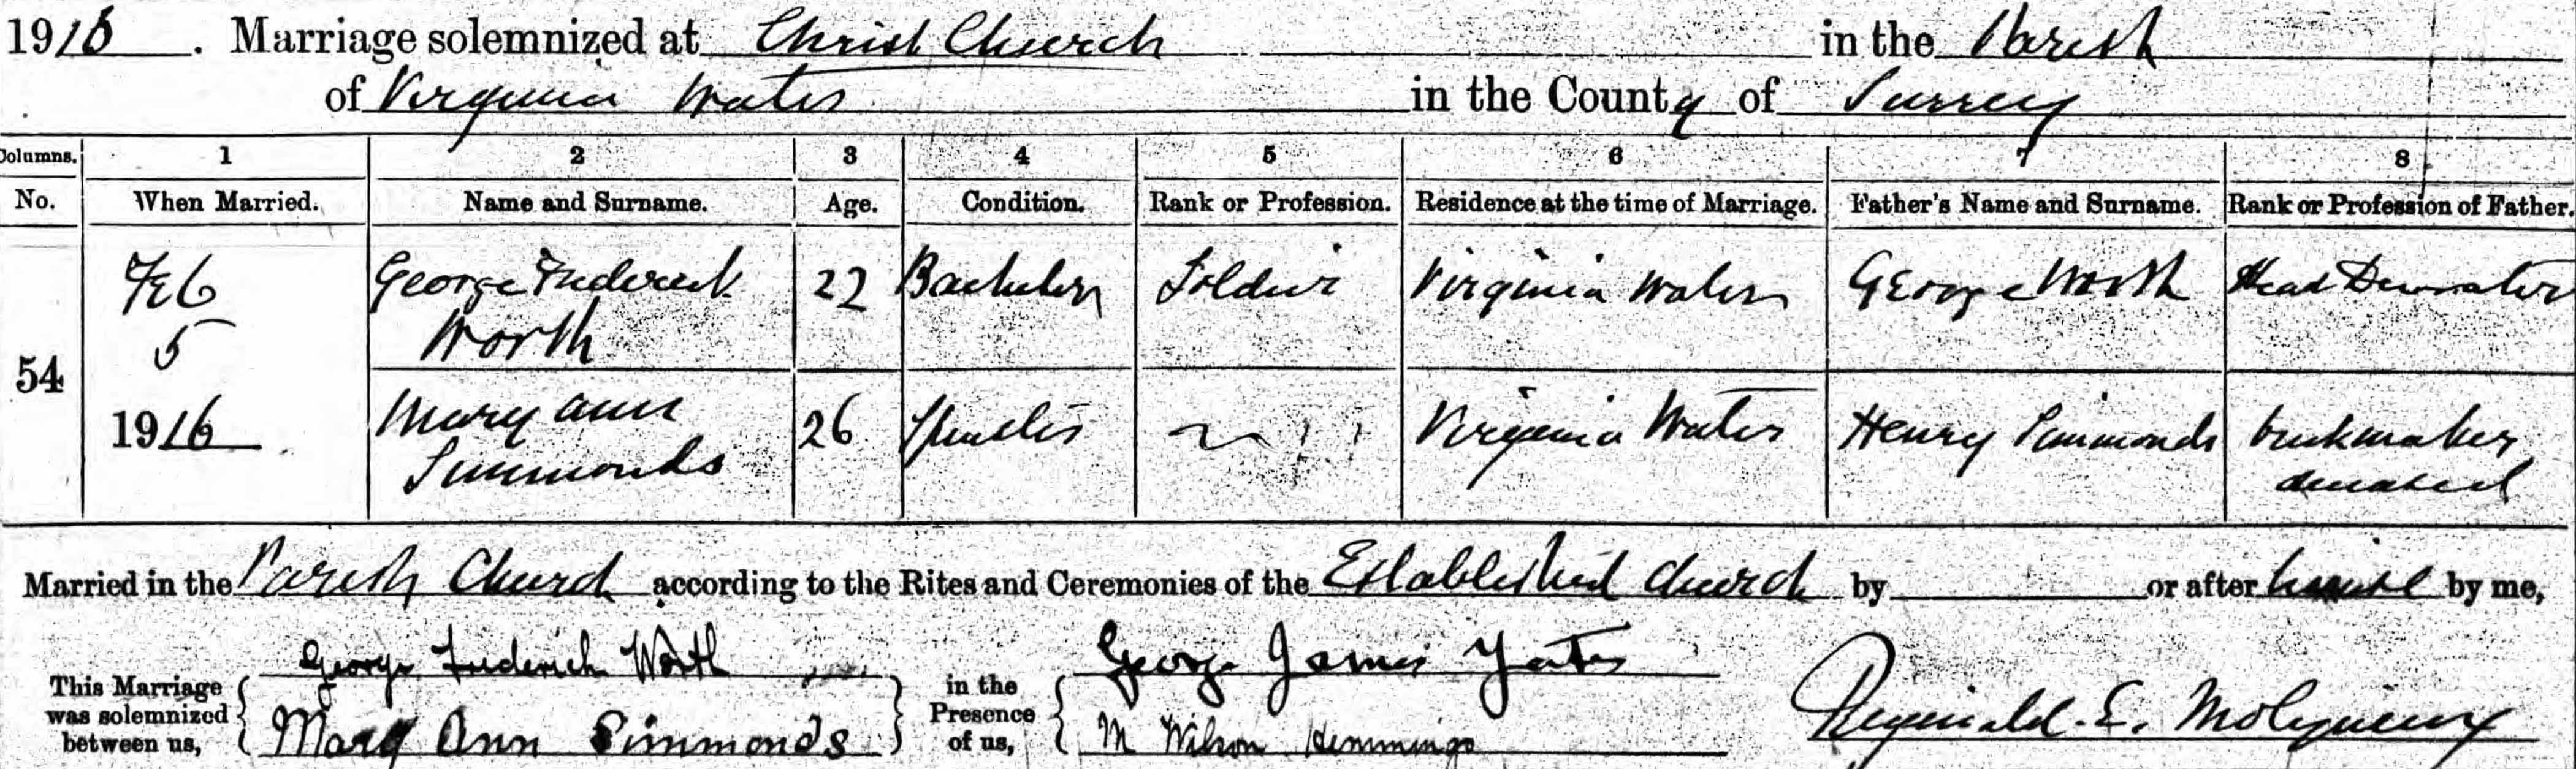 1916. Marriage solemnized at Christ Church in the Parish
of Virginia Water in the County of Surrey
Columns. 1 2 3 4 5 6 7 8
No. When Married. Name and Surname. Age. Condition. Rank or Profession. Residence at the time of Marriage. Father's Name and Surname. Rank or Profession of Father.
Feb George Frederick 22 Bachelor Soldier Virginia Water George Worth Head
5 Worth
54
1916 Mary Ann 26 Spinster Virginia Water Henry Simmonds brickmaker
Simmonds deceased
Married in the Parish Church according to the Rites and Ceremonies of the Established Church by or after by me,
George Frederick Worth George James Yates
This Marriage was solemnized between us, in the Presence of us, Reginald. E. Molyneux
Mary Ann Simmonds M Wilson Hemmings